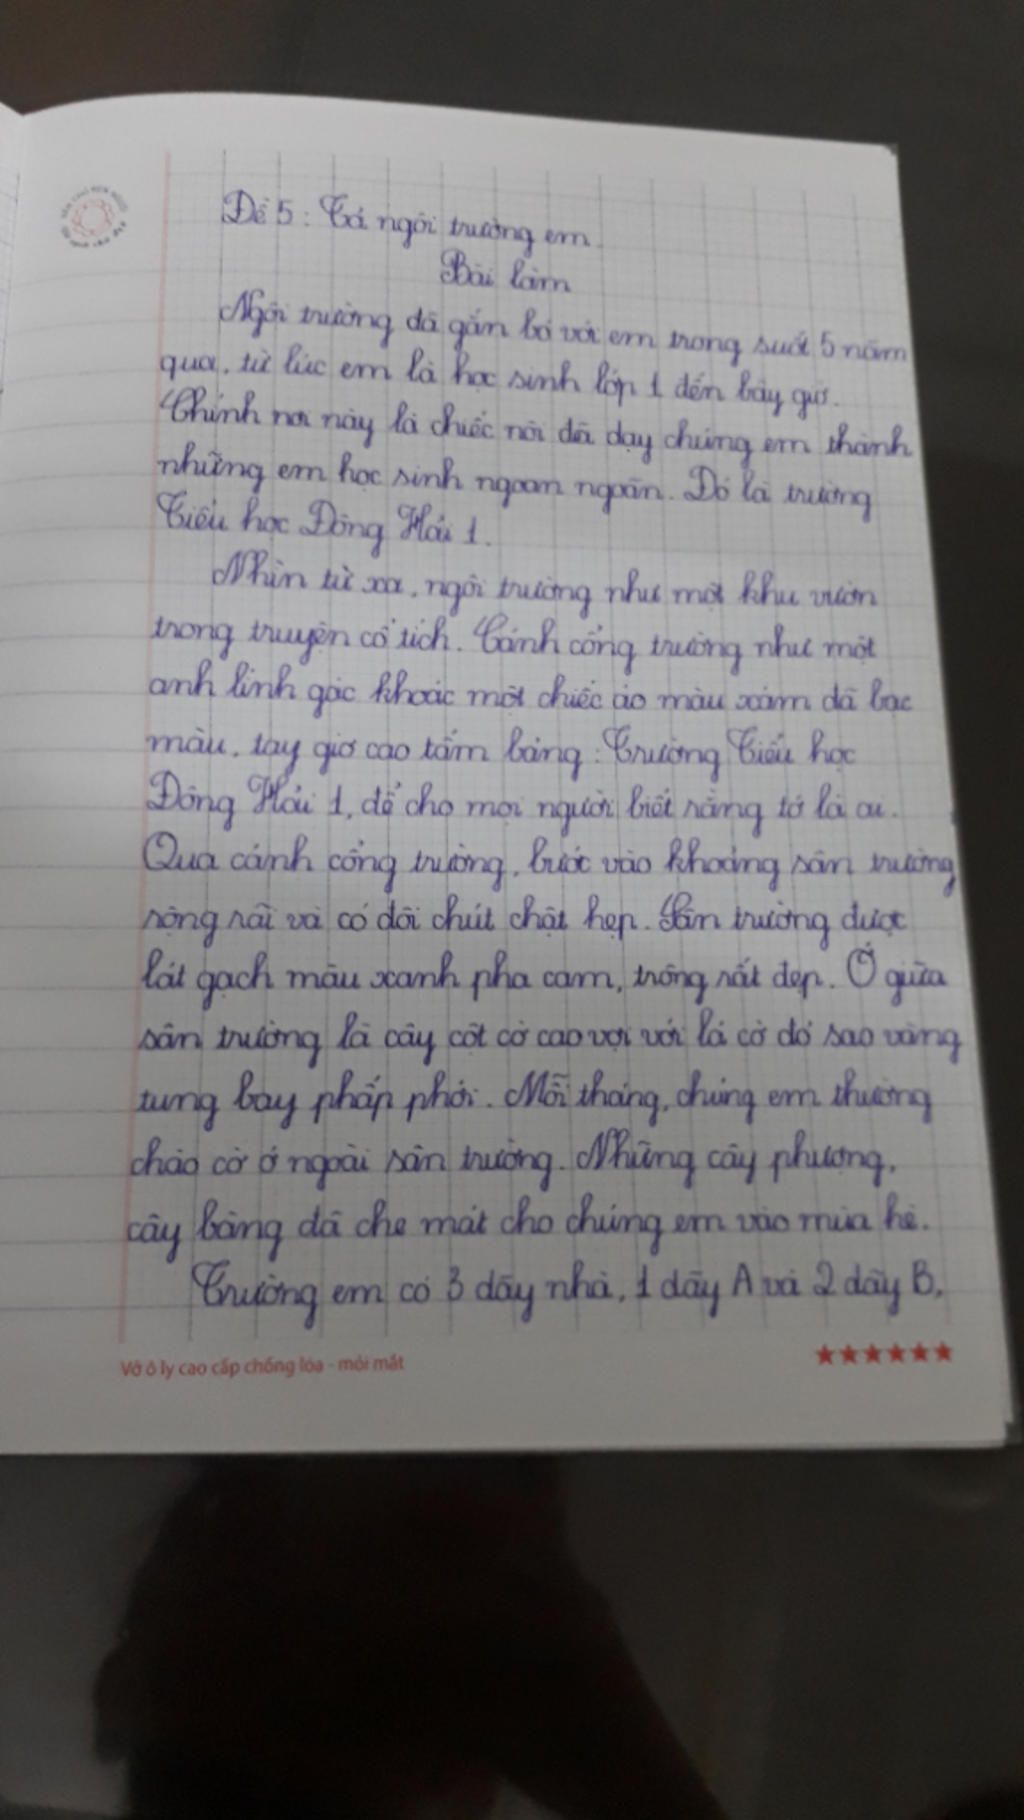 Đề 5: Tả ngôi trường em.
Bài làm
Ngôi trường đã gắn bó với em trong suốt 5 năm
qua, từ lúc em là học sinh lớp 1 đến bây giờ.
Chính nơi này là chiếc nôi đã dạy chúng em thành
những em học sinh ngoan ngoãn. Đó là trường
Tiểu học Đông Hải 1.
Nhìn từ xa, ngôi trường như một khu vườn
trong truyện cổ tích. Cánh cổng trường như một
anh lính gác khoác một chiếc áo màu xám đã bạc
màu, tay giơ cao tấm bảng: Trường Tiểu học
Đông Hải 1, để cho mọi người biết rằng tớ là ai.
Qua cánh cổng trường, bước vào khoảng sân trường
rộng rãi và có đôi chút chật hẹp. Sân trường được
lát gạch màu xanh pha cam, trông rất đẹp. Ở giữa
sân trường là cây cột cờ cao vợi với lá cờ đỏ sao vàng
tung bay phấp phới. Mỗi tháng, chúng em thường
chào cờ ở ngoài sân trường. Những cây phượng,
cây bàng đã che mát cho chúng em vào mùa hè.
Trường em có 3 dãy nhà, 1 dãy A và 2 dãy B,
Vở ô ly cao cấp chống lóa - mỏi mắt